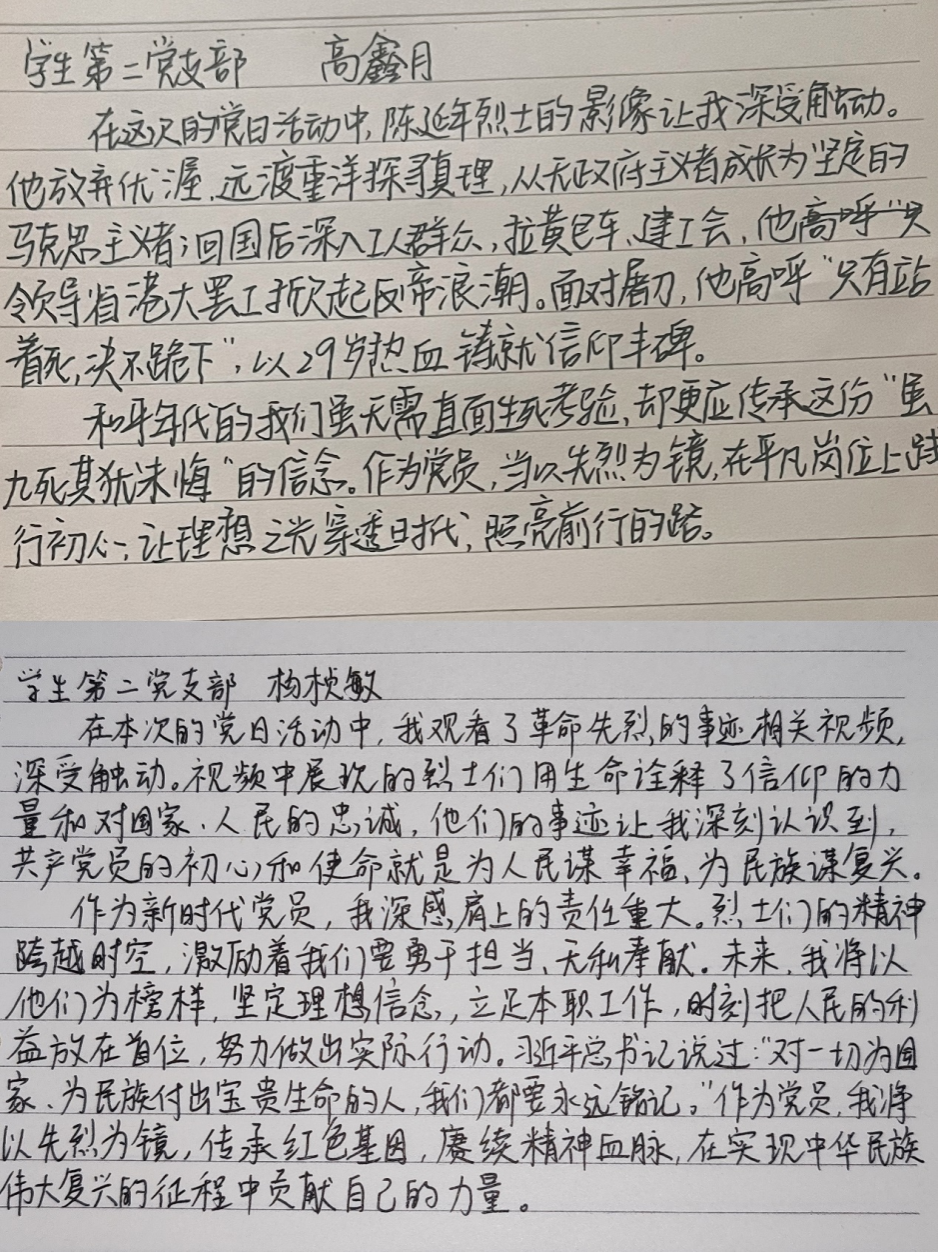 学生第二党支部 高鑫月
在这次的党日活动中,陈延年烈士的影像让我深受触动。
他放弃优渥、远渡重洋探寻真理,从无政府主义者成长为坚定的
马克思主义者;回国后深入工人群众,拉黄包车、建工会,他高呼“只
领导省港大罢工掀起反帝浪潮。面对屠刀,他高呼“只有站
着死,决不跪下”,以29岁热血铸就信仰丰碑。
和平年代的我们虽无需直面生死考验,却更应传承这份“虽
九死其犹未悔”的信念。作为党员,当以先烈为镜,在平凡岗位上践
行初心,让理想之光穿透时代,照亮前行的路。
学生第二党支部 杨桢敏
在本次的党日活动中,我观看了革命先烈的事迹相关视频,
深受触动。视频中展现的烈士们用生命诠释了信仰的力
量和对国家、人民的忠诚,他们的事迹让我深刻认识到,
共产党员的初心和使命就是为人民谋幸福、为民族谋复兴。
作为新时代党员,我深感肩上的责任重大。烈士们的精神
跨越时空,激励着我们要勇于担当、无私奉献。未来,我将以
他们为榜样,坚定理想信念,立足本职工作,时刻把人民的利
益放在首位,努力做出实际行动。习近平总书记说过:“对一切为国
家、为民族付出宝贵生命的人,我们都要永远铭记。”作为党员,我将
以先烈为镜,传承红色基因,赓续精神血脉,在实现中华民族
伟大复兴的征程中贡献自己的力量。